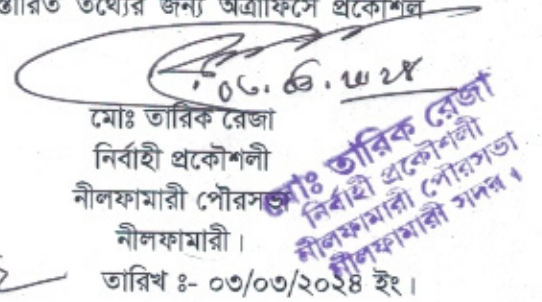 তথ্যের জন্য অত্রাফিসে প্রকৌশল
মোঃ তারিক রেজা
নির্বাহী প্রকৌশলী
নীলফামারী পৌরসভা
নীলফামারী।
তারিখ ঃ- ০৩/০৩/২০২৪ ইং।
মোঃ তারিক রেজা
নির্বাহী প্রকৌশলী
নীলফামারী পৌরসভা
নীলফামারী সদর।